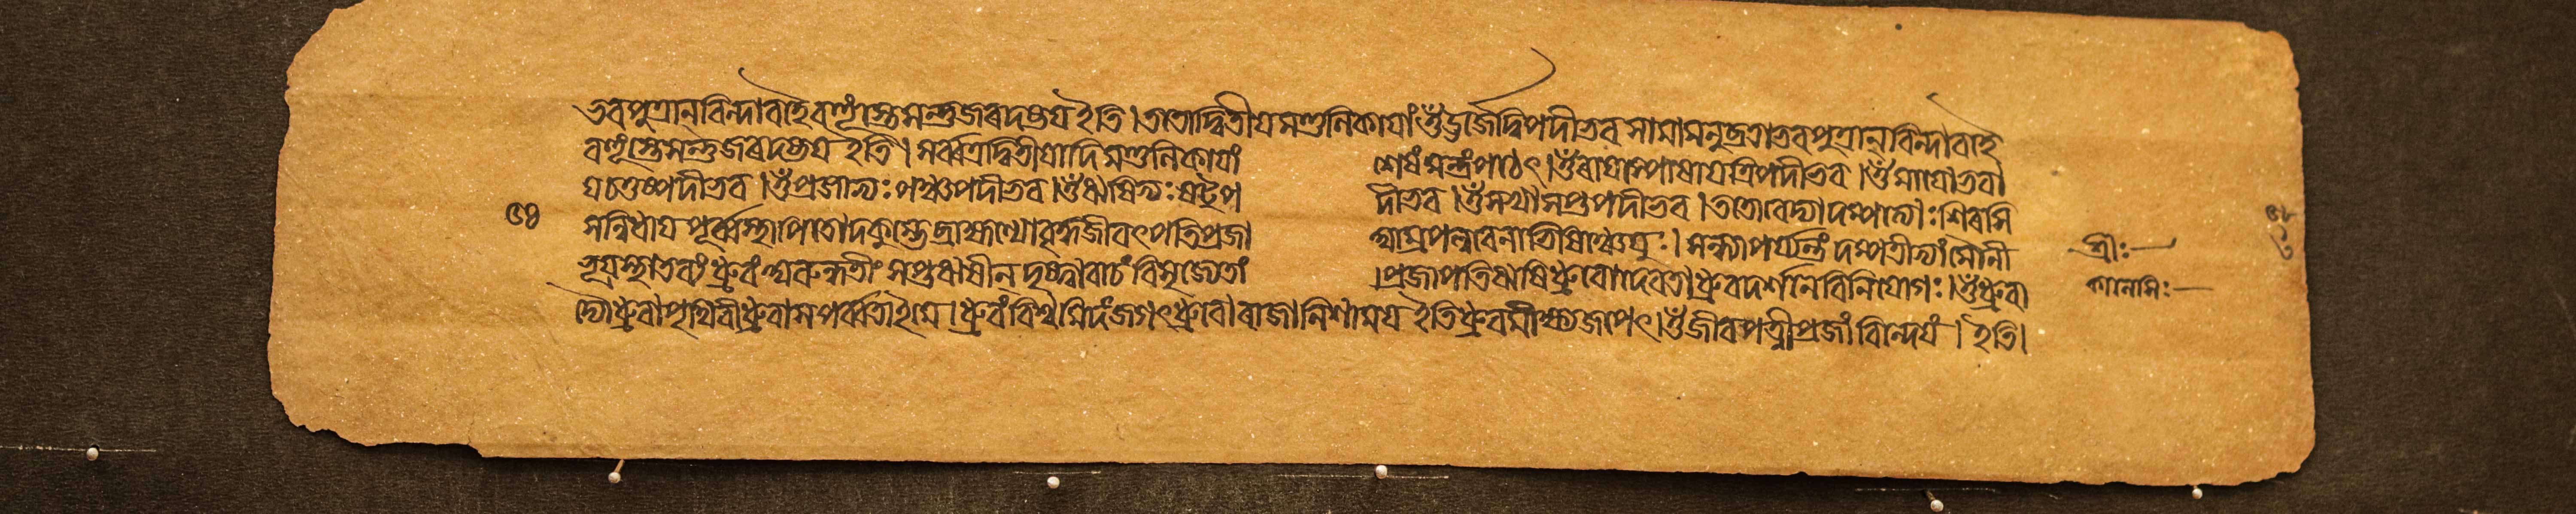 ভবপুত্রান্বিন্দাবহৈবহূংস্তেসন্তুজরদষ্টয ইতি। ততোদ্বিতীযমণ্ডলিকাযাং ওঁ ঊর্জেদ্বিপদীভব সামামনুব্রতাভবপুত্রান্বিন্দাবহৈ
বহূংস্তেসন্তুজরদষ্টয ইতি। সর্ব্বত্রদ্বিতীযাদিমণ্ডলিকাযাং শেষংমন্ত্রংপঠেৎ। ওঁ রাযস্পোষাযত্রিপদীভব। ওঁ মাযোভবা
যচতুষ্পদীভব। ওঁ প্রজাভ্যঃপঞ্চপদীভব। ওঁ ঋষিভ্যঃষট্‌প দীভব। ওঁ সখাসপ্তপদীভব। ততোবেদ্যাদম্পত্যোঃশিরসি
সন্নিধাযপূর্ব্বস্থাপিতোদকুম্ভে ব্রাহ্মণ্যোবৃদ্ধজীবৎপতিপ্রজা আম্রপল্লবেনাভিষিঞ্চেযুঃ। সন্ধ্যাপর্য্যন্তং দম্পতীভ্যাংমৌনী
ভূযস্থাতব্যং ধ্রুবং অরুন্ধতীং সপ্তঋষীন্ দৃষ্ট্বাবাচং বিসৃজেতাং প্রজাপতিঋষিধ্রুবোদেবতাধ্রুবদর্শনেবিনিযোগঃ। ওঁ ধ্রুবা
দ্যৌধ্রুবাপৃথিবীধ্রুবাসপর্ব্বতাইমে। ধ্রুবংবিশ্বমিদংজগৎধ্রুবোরাজাবিশামযং ইতিধ্রুবমীক্ষ্যজপেৎ। ওঁ জীবপত্নীপ্রজাংবিন্দেযং। ইতি।
শ্রীঃ